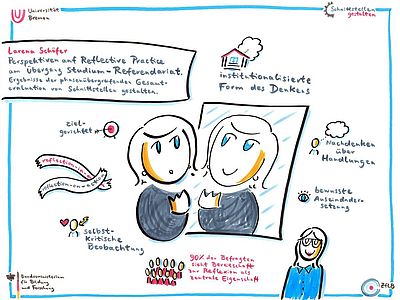 Universität
Bremen
Schnittstellen
gestalten
Larena Schäfer
Perspektiven auf Reflective Practice
am Übergang Studium-Referendariat.
Ergebnisse der phasenübergreifenden Gesamt-
evaluation von Schnittstellen gestalten.
institutionalisierte
Form des Denkens
ziel-
gerichtet
Nachdenken
über
Handlungen
reflection-in-a
reflection-on-action
bewusste
Auseinander-
setzung
selbst-
kritische
Beobachtung
90% der Befragten
sieht Bereitschaft
zur Reflexion als
zentrale Eigenschaft
Bundesministerium
für Bildung
und Forschung
ZfLB